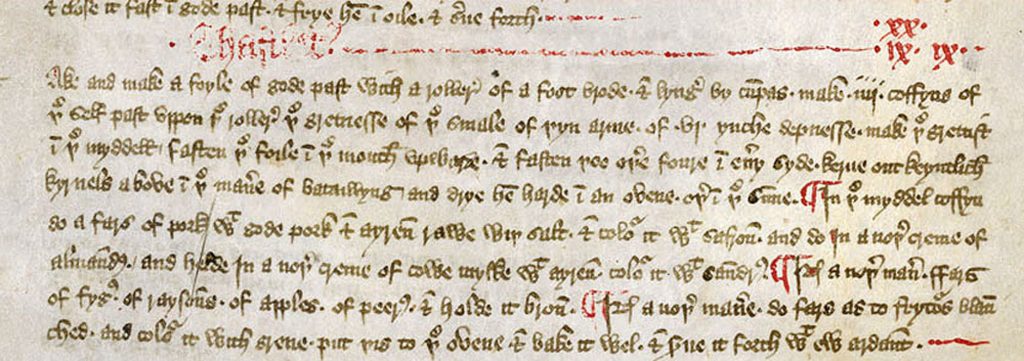 & close it fast ī gode past. & frye hē ī oile. & sue forth.
Chastlet. .xx. ix. ix.
Ake and make a foyle of gode past with a roller of a foot brode. & lyngr by cūpas. make .iiii. coffyns of
þe self past vppon þe roller þe gretnesse of þe smale of þyn arme. of .vi. ynche depnesse. make þe gretust
ī þe myddell. fasten þe foile ī þe mouth vpwarde. & fasten þee oþe foure ī euy syde. kerue out keyntlich
kyrnels above ī þe mane of bataiwyng and drye hē harde ī an ovene. oþ ī þe sūne. ¶ In þe myddel coffyn
do a fars of pork wt gode pork & ayren rawe wiþ salt. & colo it wt safron. and do in a noþ creme of
almands. and helde in a noþ creme of cowe mylke wt ayren. colo it wt sandr. ¶ Itel a noþ man. ffars
of fygs. of raysons. of apples. of peer. & holde it bron. ¶ Itel a noþ mane. do fars as to frytos blan
ched. and colo it with grene. put þis to þe ovene & bake it wel. & sue it forth wt ew ardant.